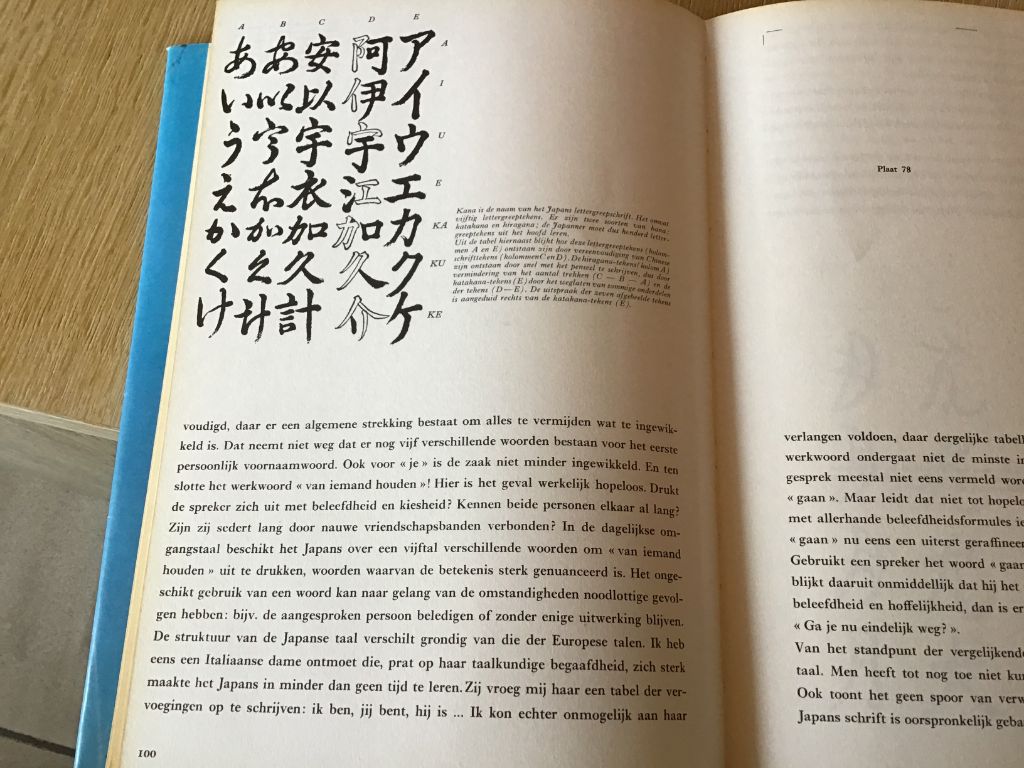 A B C D E
あ あ 安 阿 ア A
い 以 以 伊 イ I
う 宇 宇 宇 ウ U
え 衣 衣 江 エ E
か 加 加 加 カ KA
く 久 久 久 ク KU
け 計 計 介 ケ KE
Kana is de naam van het Japans lettergreepschrift. Het omvat
vijftig lettergreeptekens. Er zijn twee soorten van kana:
katakana en hiragana; de Japanner moet dus honderd letter-
greeptekens uit het hoofd leren.
Uit de tabel hiernaast blijkt hoe deze lettergreeptekens (kolom-
men A en E) ontstaan zijn door vereenvoudiging van Chinese
schrifttekens (kolommen C en D). De hiragana-tekens (kolom A)
zijn ontstaan door snel met het penseel te schrijven, dus door
vermindering van het aantal trekken (C — B — A) en de
katakana-tekens (E) door het weglaten van sommige onderdelen
der tekens (D—E). De uitspraak der zeven afgebeelde tekens
is aangeduid rechts van de katakana-tekens (E).
voudigd, daar er een algemene strekking bestaat om alles te vermijden wat te ingewik-
keld is. Dat neemt niet weg dat er nog vijf verschillende woorden bestaan voor het eerste
persoonlijk voornaamwoord. Ook voor « je » is de zaak niet minder ingewikkeld. En ten
slotte het werkwoord « van iemand houden »! Hier is het geval werkelijk hopeloos. Drukt
de spreker zich uit met beleefdheid en kiesheid? Kennen beide personen elkaar al lang?
Zijn zij sedert lang door nauwe vriendschapsbanden verbonden? In de dagelijkse om-
gangstaal beschikt het Japans over een vijftal verschillende woorden om « van iemand
houden » uit te drukken, woorden waarvan de betekenis sterk genuanceerd is. Het onge-
schikt gebruik van een woord kan naar gelang van de omstandigheden noodlottige gevol-
gen hebben: bijv. de aangesproken persoon beledigen of zonder enige uitwerking blijven.
De struktuur van de Japanse taal verschilt grondig van die der Europese talen. Ik heb
eens een Italiaanse dame ontmoet die, prat op haar taalkundige begaafdheid, zich sterk
maakte het Japans in minder dan geen tijd te leren. Zij vroeg mij haar een tabel der ver-
voegingen op te schrijven: ik ben, jij bent, hij is ... Ik kon echter onmogelijk aan haar
100
Plaat 78
verlangen voldoen, daar dergelijke tabell
werkwoord ondergaat niet de minste in
gesprek meestal niet eens vermeld word
« gaan ». Maar leidt dat niet tot hopelo
met allerhande beleefdheidsformules ie
« gaan » nu eens een uiterst geraffineer
Gebruikt een spreker het woord « gaan
blijkt daaruit onmiddellijk dat hij het
beleefdheid en hoffelijkheid, dan is er
« Ga je nu eindelijk weg? ».
Van het standpunt der vergelijkende
taal. Men heeft tot nog toe niet kun
Ook toont het geen spoor van verw
Japans schrift is oorspronkelijk geba